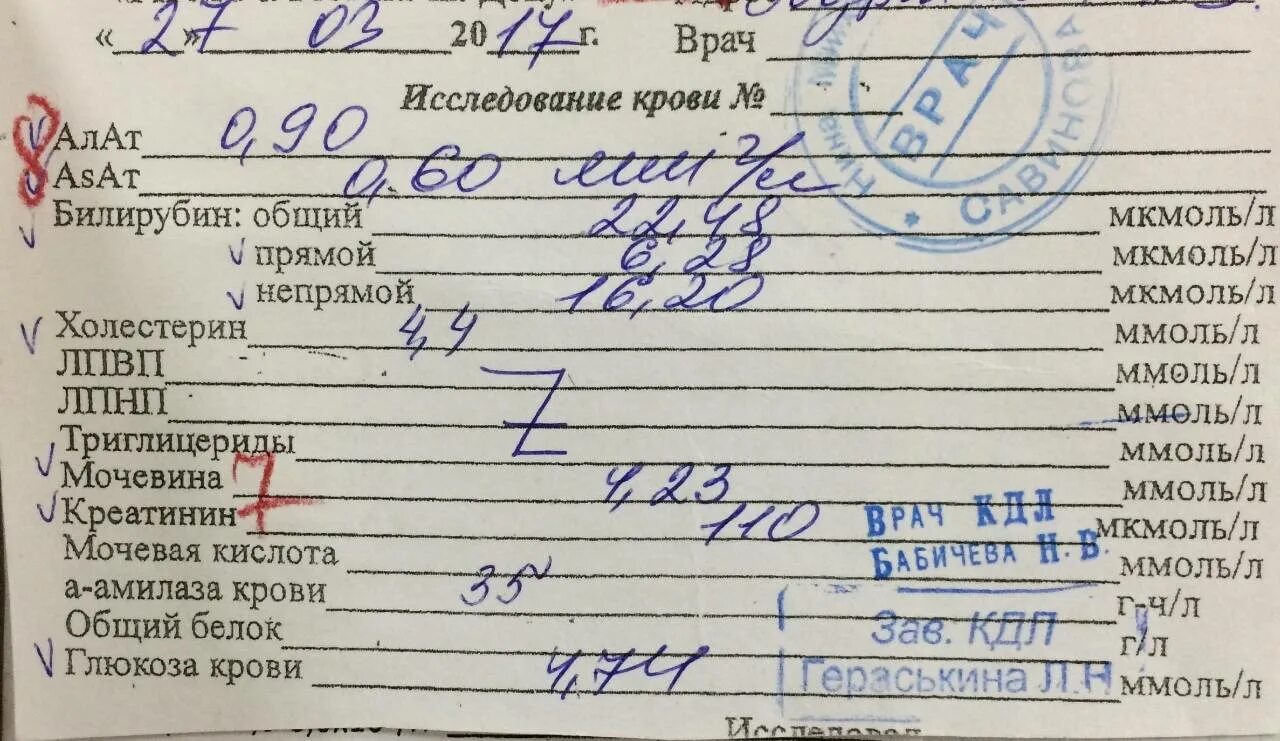 « 27 » 03 2017 г. Врач
ВРАЧ
САВИНОВА
Исследование крови №
АлАт 0,90
8
АsАт 0,60
Билирубин: общий 22,48 мкмоль/л
прямой 6,28 мкмоль/л
непрямой 16,20 мкмоль/л
Холестерин 4,4 ммоль/л
ЛПВП ммоль/л
ЛПНП Z ммоль/л
Триглицериды ммоль/л
Мочевина 4,23 ммоль/л
7
Креатинин 110 мкмоль/л
ВРАЧ КДЛ
БАБИЧЕВА Н. В.
Мочевая кислота ммоль/л
а-амилаза крови 35 г-ч/л
Общий белок г/л
Зав. КДЛ
Гераськина Л.Н
Глюкоза крови 4,74 ммоль/л
Исследовал